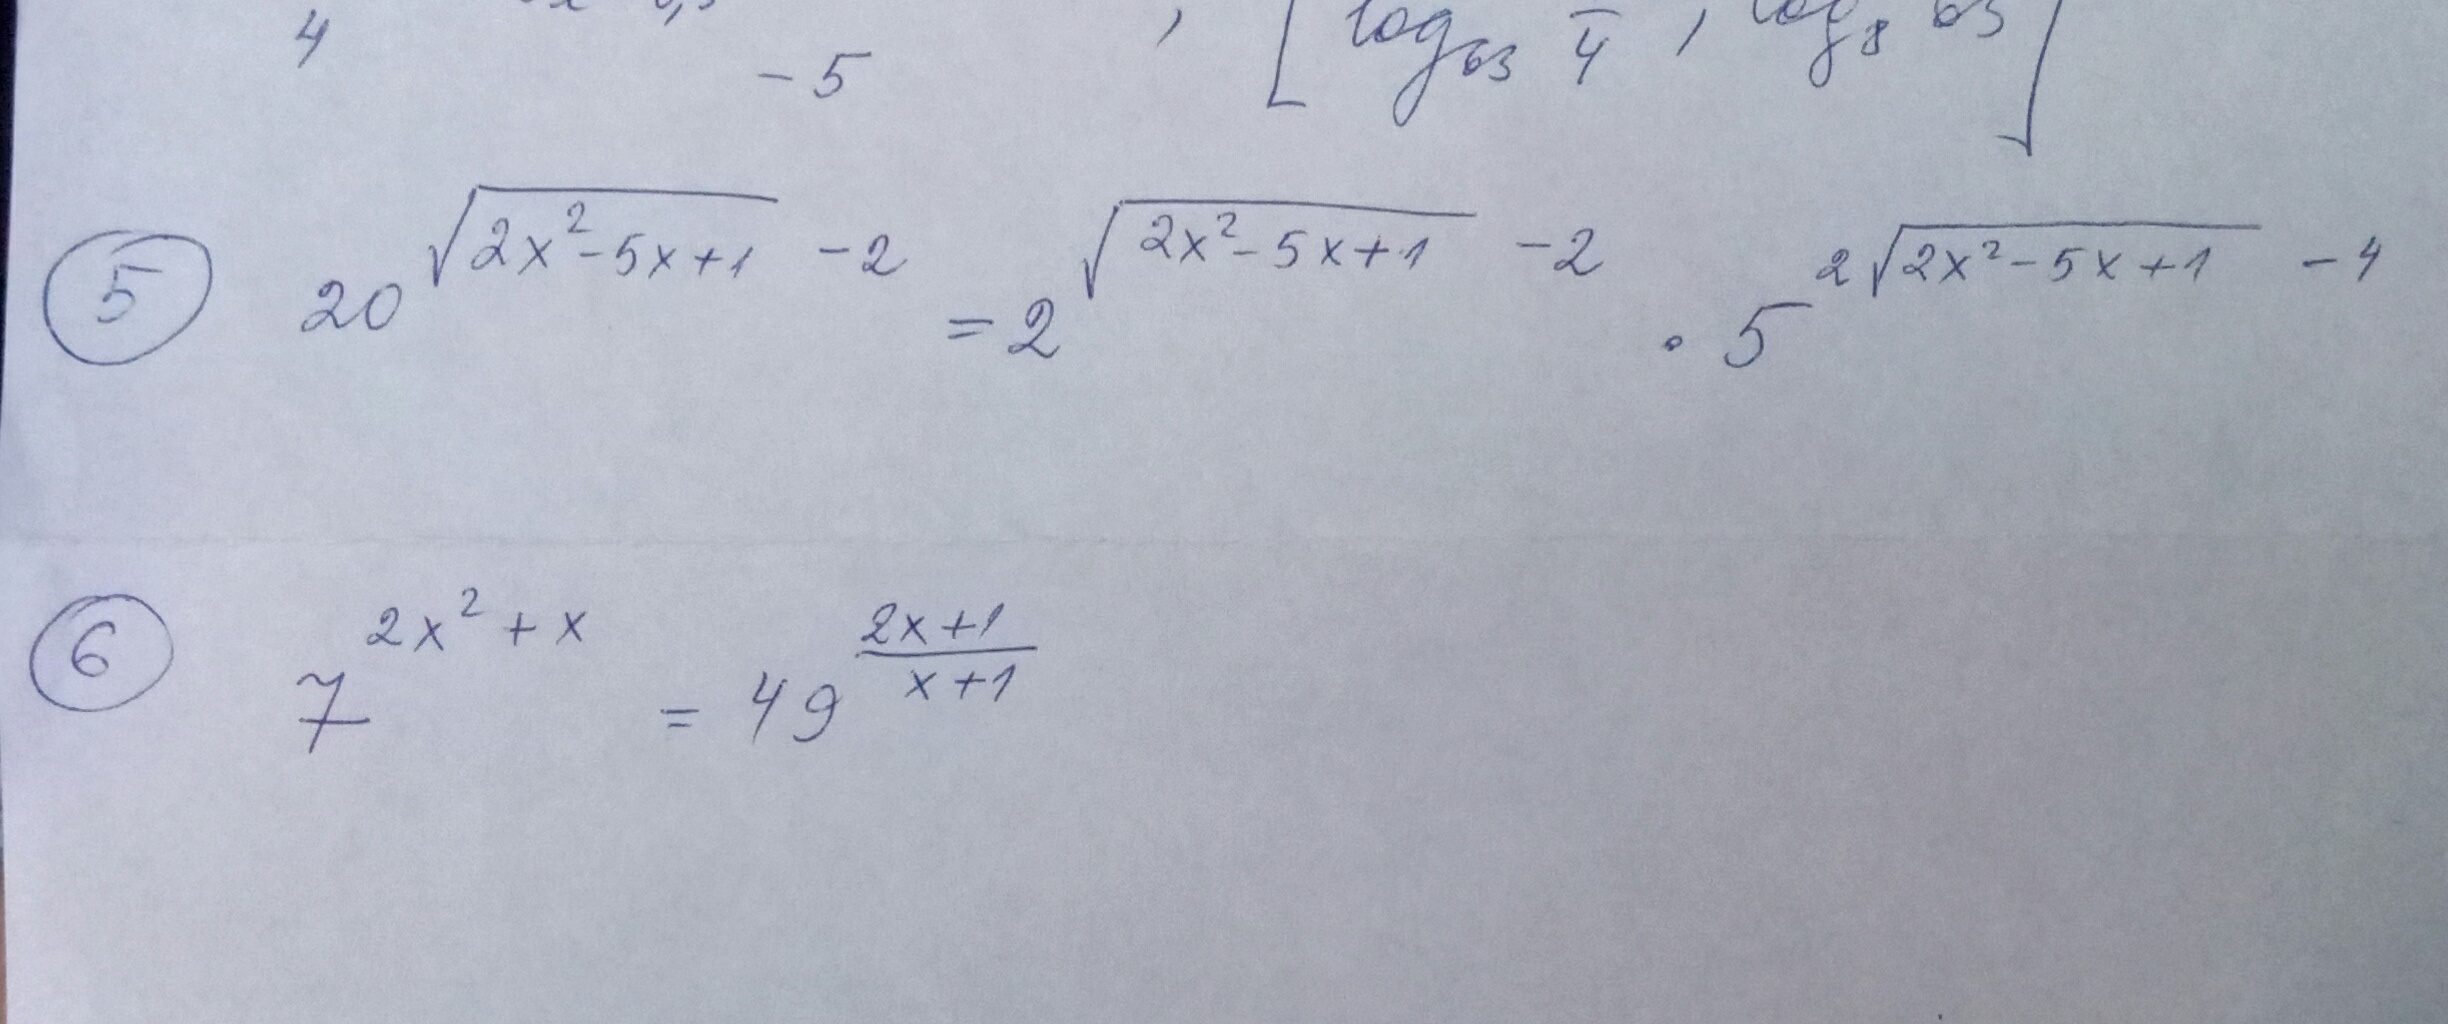 4 - 5 , [ log₆₃ 4 , log₈ 63 ]
⑤ 20^(√(2x²-5x+1) - 2) = 2^(√(2x²-5x+1) - 2) · 5^(2√(2x²-5x+1) - 4)
⑥ 7^(2x²+x) = 49^((2x+1)/(x+1))